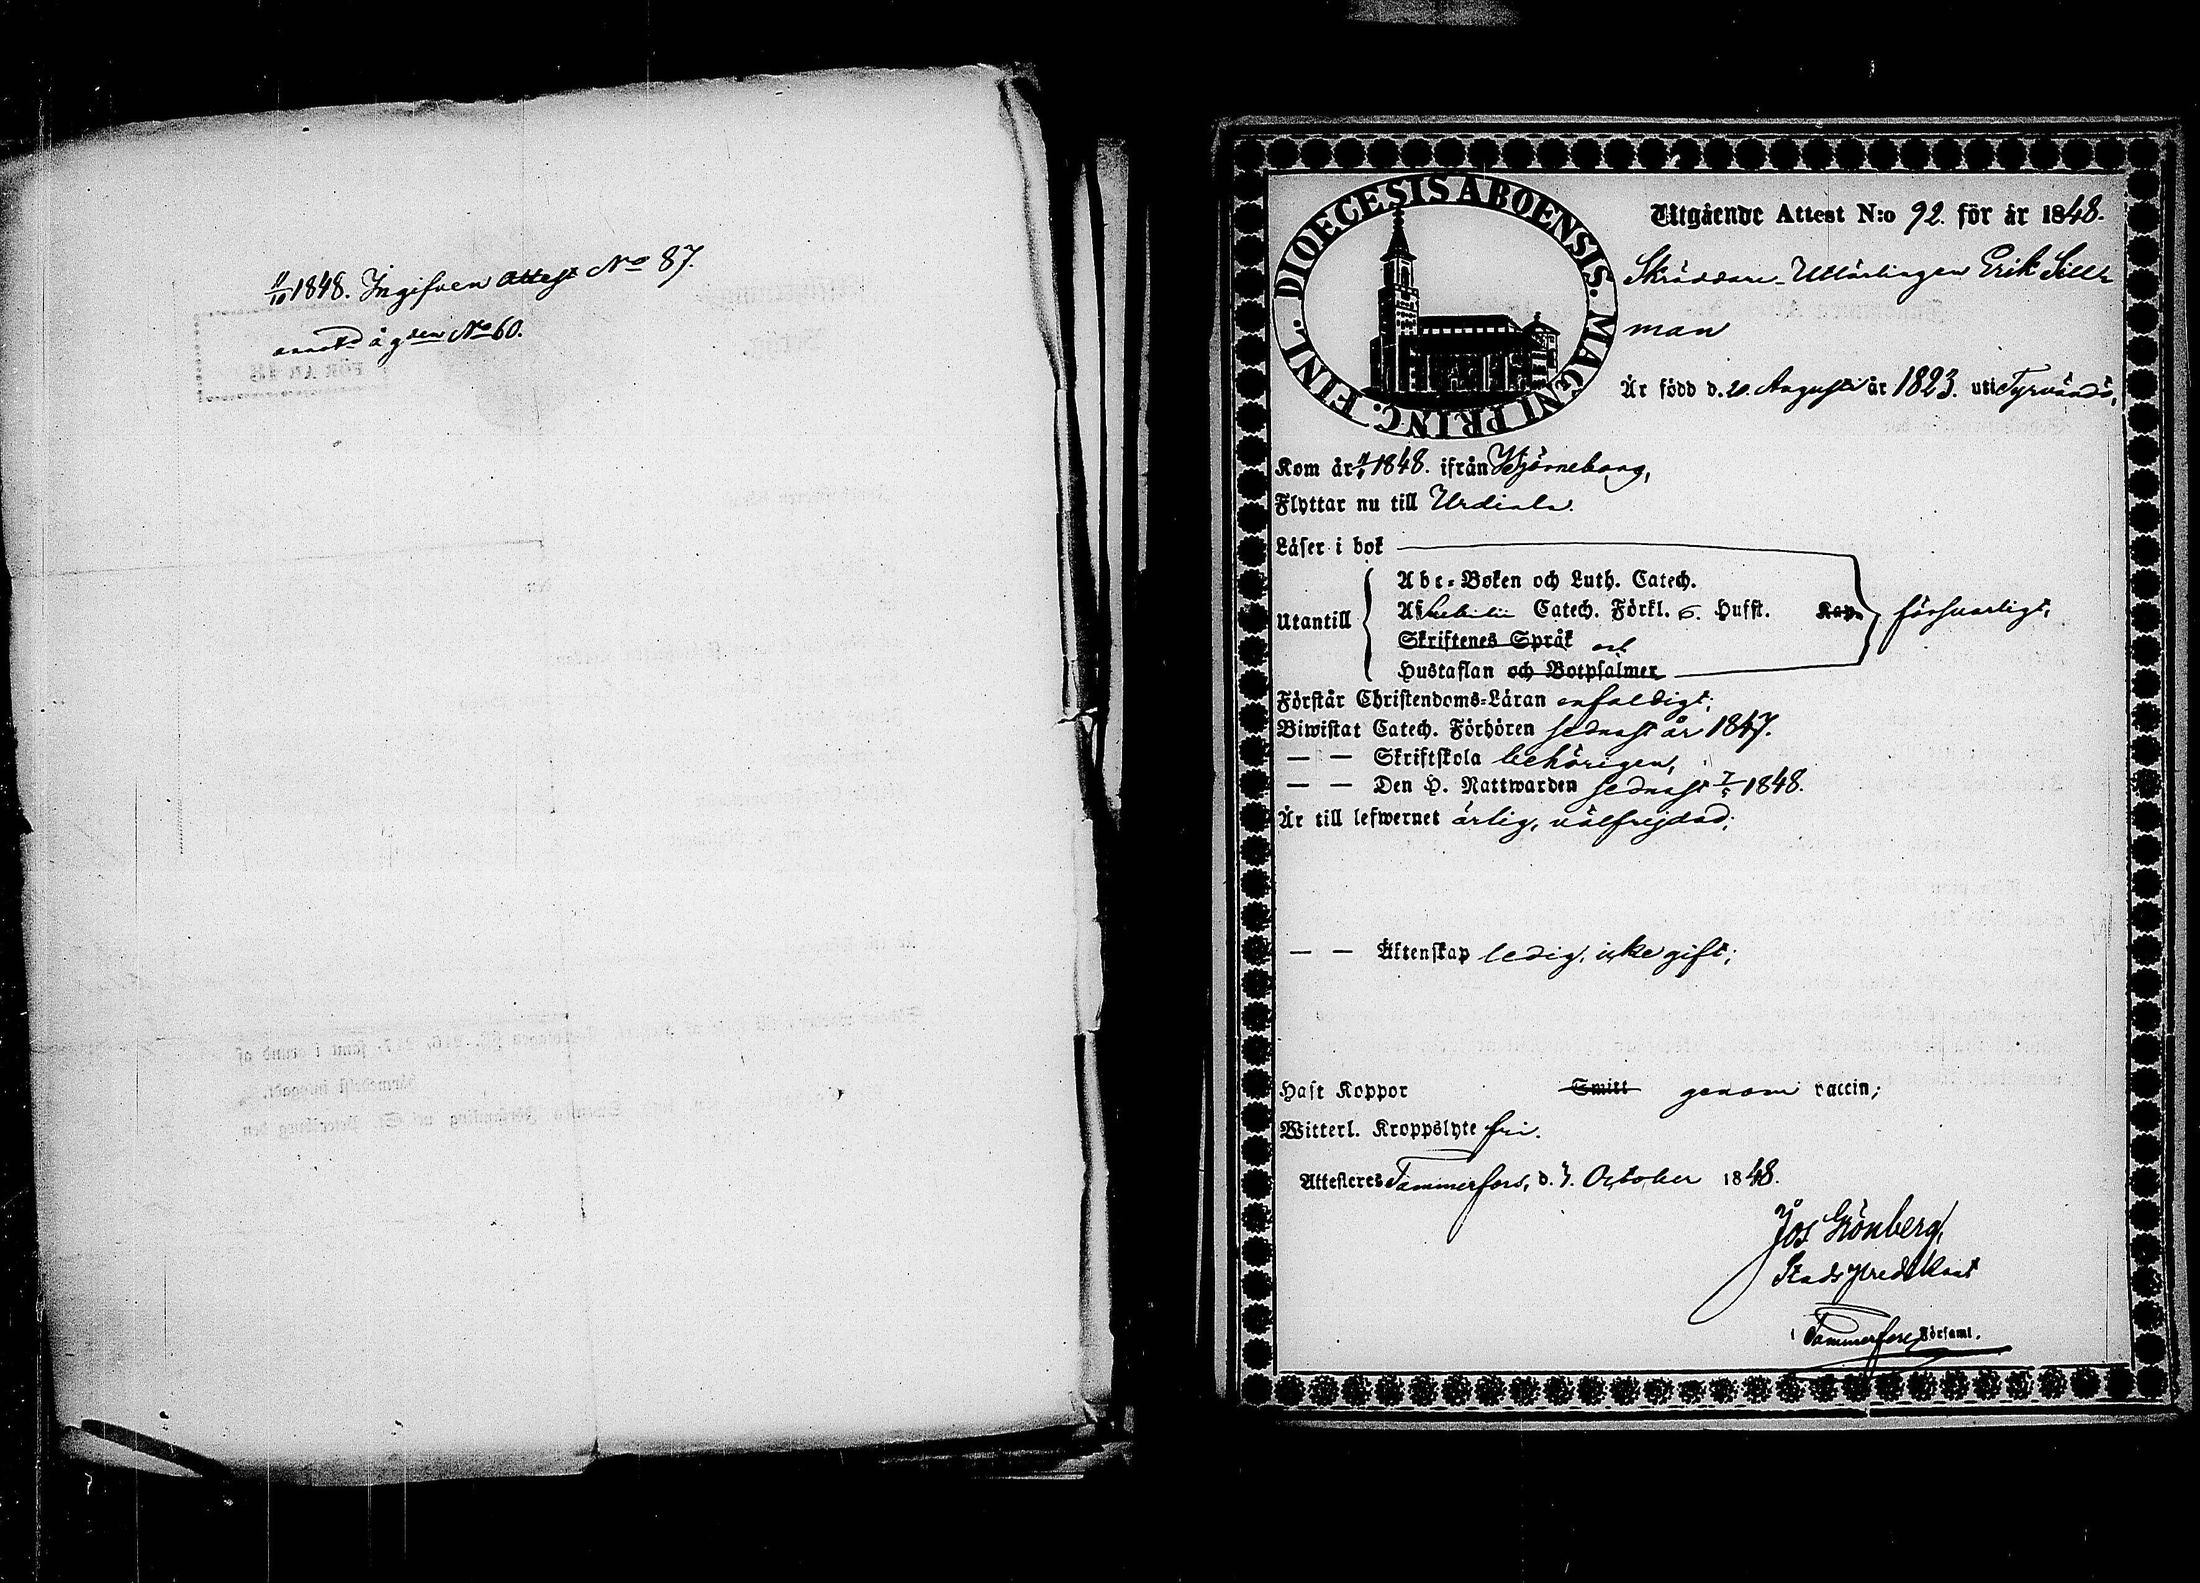 11/10 1848. Ingifven Attest No 87.
No 60.
DIOECESIS ABOENSIS. MAGNI PRINC. FINL.
Utgående Attest N:o 92. för år 1848.
Skräddare-Utlärlingen Erik Sill=
man
Är född d. 20. Augusti år 1823. uti Tyrvändö,
Kom år 1848. ifrån Björneborg,
Flyttar nu till Urdiala.
Läser i bok
Utantill
Abc-Boken och Luth. Catech.
Af Sebelii Catech. Förkl. Husst. Kap.
Skriftenes Språk och
Hustaflan och Botpsalmer
försvarligt,
Förstår Christendoms-Läran enfaldigt;
Biwistat Catech. Förhören sednast år 1847.
— — Skriftskola behörigen,
— — Den H. Nattwarden sednast 1848.
Är till lefwernet ärlig, välfrejdad;
— — Äktenskap ledig, icke gift;
Haft Koppor Smitt genom vaccin;
Witterl. Kroppslyte fri.
Attesteres Tammerfors, d. 7. October 1848.
Jos Grönberg,
Stads Predikant
i Tammerfors Församl.